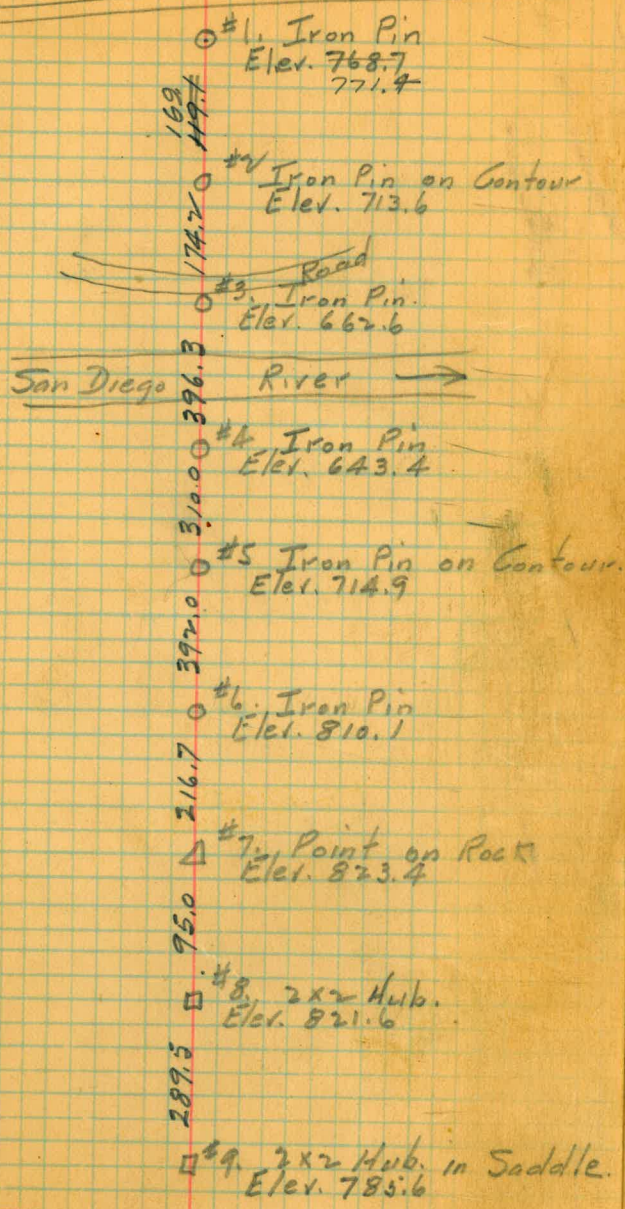 #1. Iron Pin
Elev. 768.7
771.4
169.
119.1
#2 Iron Pin on Contour
Elev. 713.6
174.2
Road
#3. Iron Pin.
Elev. 662.6
396.3
San Diego River
#4 Iron Pin
Elev. 643.4
310.0
#5 Iron Pin on Contour.
Elev. 714.9
392.0
#6. Iron Pin
Elev. 810.1
216.7
#7. Point on Rock
Elev. 823.4
95.0
#8. 2x2 Hub.
Elev. 821.6
289.5
#9. 2x2 Hub. in Saddle.
Elev. 785.6